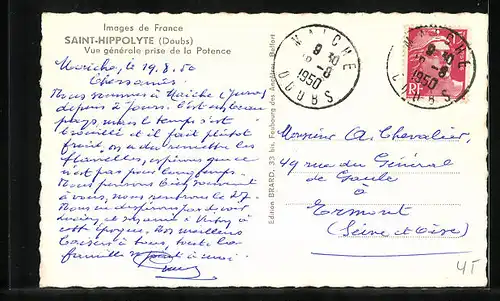 Images de France
SAINT-HIPPOLYTE (Doubs)
Vue générale prise de la Potence
Maiche, le 19.8.50
Chers amis
Nous sommes à Maîche (Jura)
depuis 2 jours. C'est un beau
pays, mais le temps s'est
brouillé et il fait plutôt
froid, on a du remettre les
flanelles, espérons que ce
n'est pas pour longtemps.
Nous pensons bien souvent
à vous, nous rentrons le 27.
Nous
à Vitry à
cette époque. Nos meilleurs
baisers à tous, toute la
famille
Edition BRARD, 33 bis, Faubourg des Ancêtres - Belfort
MAICHE
9 30
-8
1950
DOUBS
MAICHE
9 30
-8
1950
DOUBS
RF
Monsieur A. Chevalier,
49 rue du Général
de Gaulle
à
Ermont
(Seine et Oise)